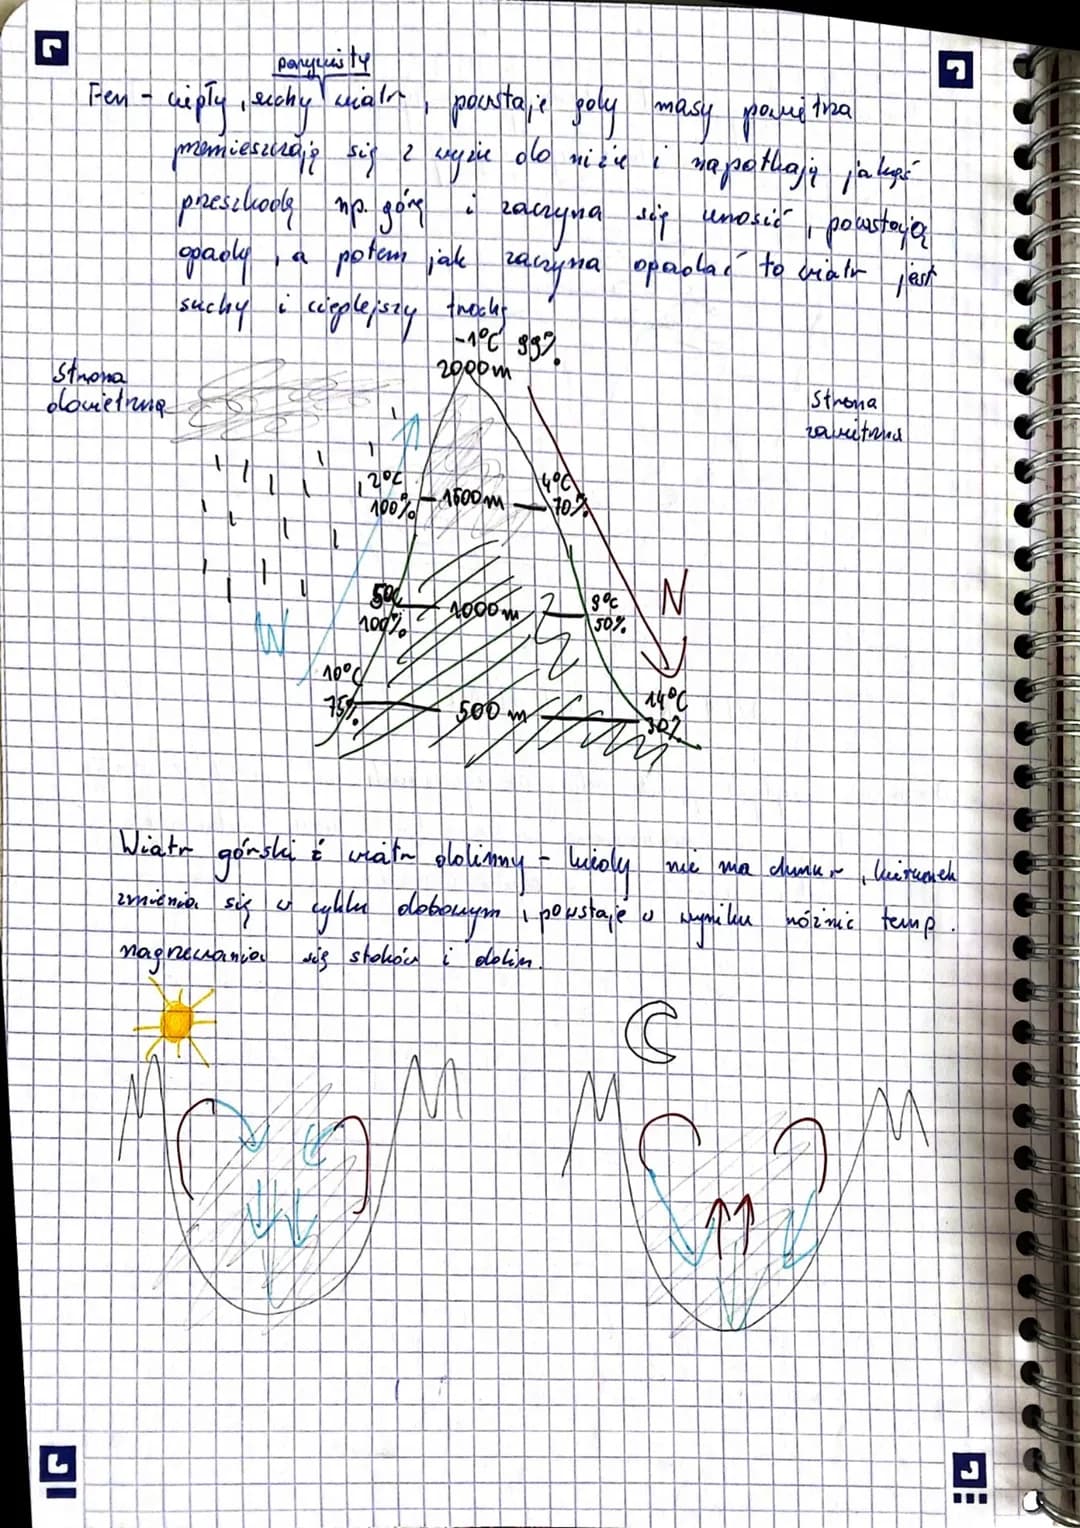 porywisty
Fen - ciepły, suchy wiatr, powstaje gdy masy powietrza
przemieszczają się z wyżu do niżu i napotkają jakąś
przeszkodę np. górę i zaczyna się unosić, powstają
opady, a potem jak zaczyna opadać to wiatr jest
suchy i cieplejszy trochę
-1°C 99%
2000m
Strona
dowietrzna
Strona
zawietrzna
2°C
100%
1500m
4°C
70%
5°C
100%
1000m
9°C
50%
W
N
10°C
75%
500m
14°C
30%
Wiatr górski i wiatr dolinny - kiedy nie ma chmur, kierunek
zmienia się w cyklu dobowym, powstaje w wyniku różnic temp.
nagrzewania się stoków i dolin.